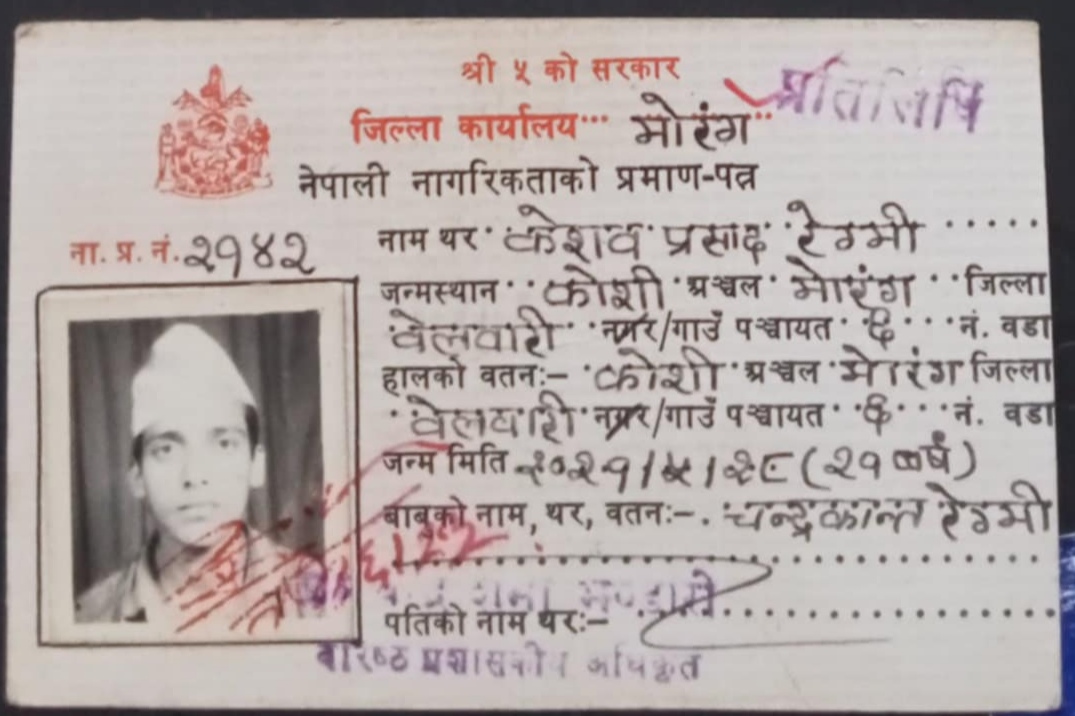 श्री ५ को सरकार
प्रतिलिपि
जिल्ला कार्यालय... मोरंग...
नेपाली नागरिकताको प्रमाण-पत्र
ना. प्र. नं. २१४२
नाम थर केशव प्रसाद रेग्मी
जन्मस्थान कोशी अञ्चल मोरंग जिल्ला
वेलवारी नगर/गाउँ पञ्चायत ६ नं. वडा
हालको वतनः- कोशी अञ्चल मोरंग जिल्ला
वेलवारी नगर/गाउँ पञ्चायत ६ नं. वडा
जन्म मिति २०२१/५/२८ (२१ वर्ष)
बाबुको नाम, थर, वतनः- चन्द्रकान्त रेग्मी
पतिको नाम थरः-
वरिष्ठ प्रशासकीय अधिकृत